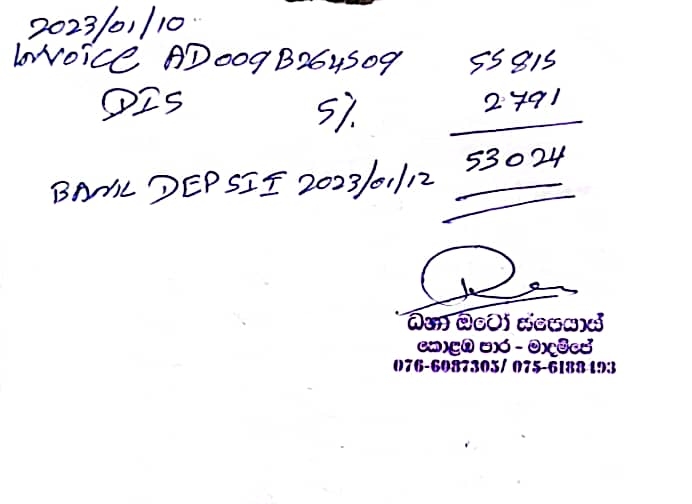 2023/01/10
Invoice AD009B264509 55815
DIS 5% 2791
53024
BANK DEPSIT 2023/01/12
ධනා ඔටෝ ස්පෙයාස්
කොළඹ පාර - මාදම්පේ
076-6087305/ 075-6188493